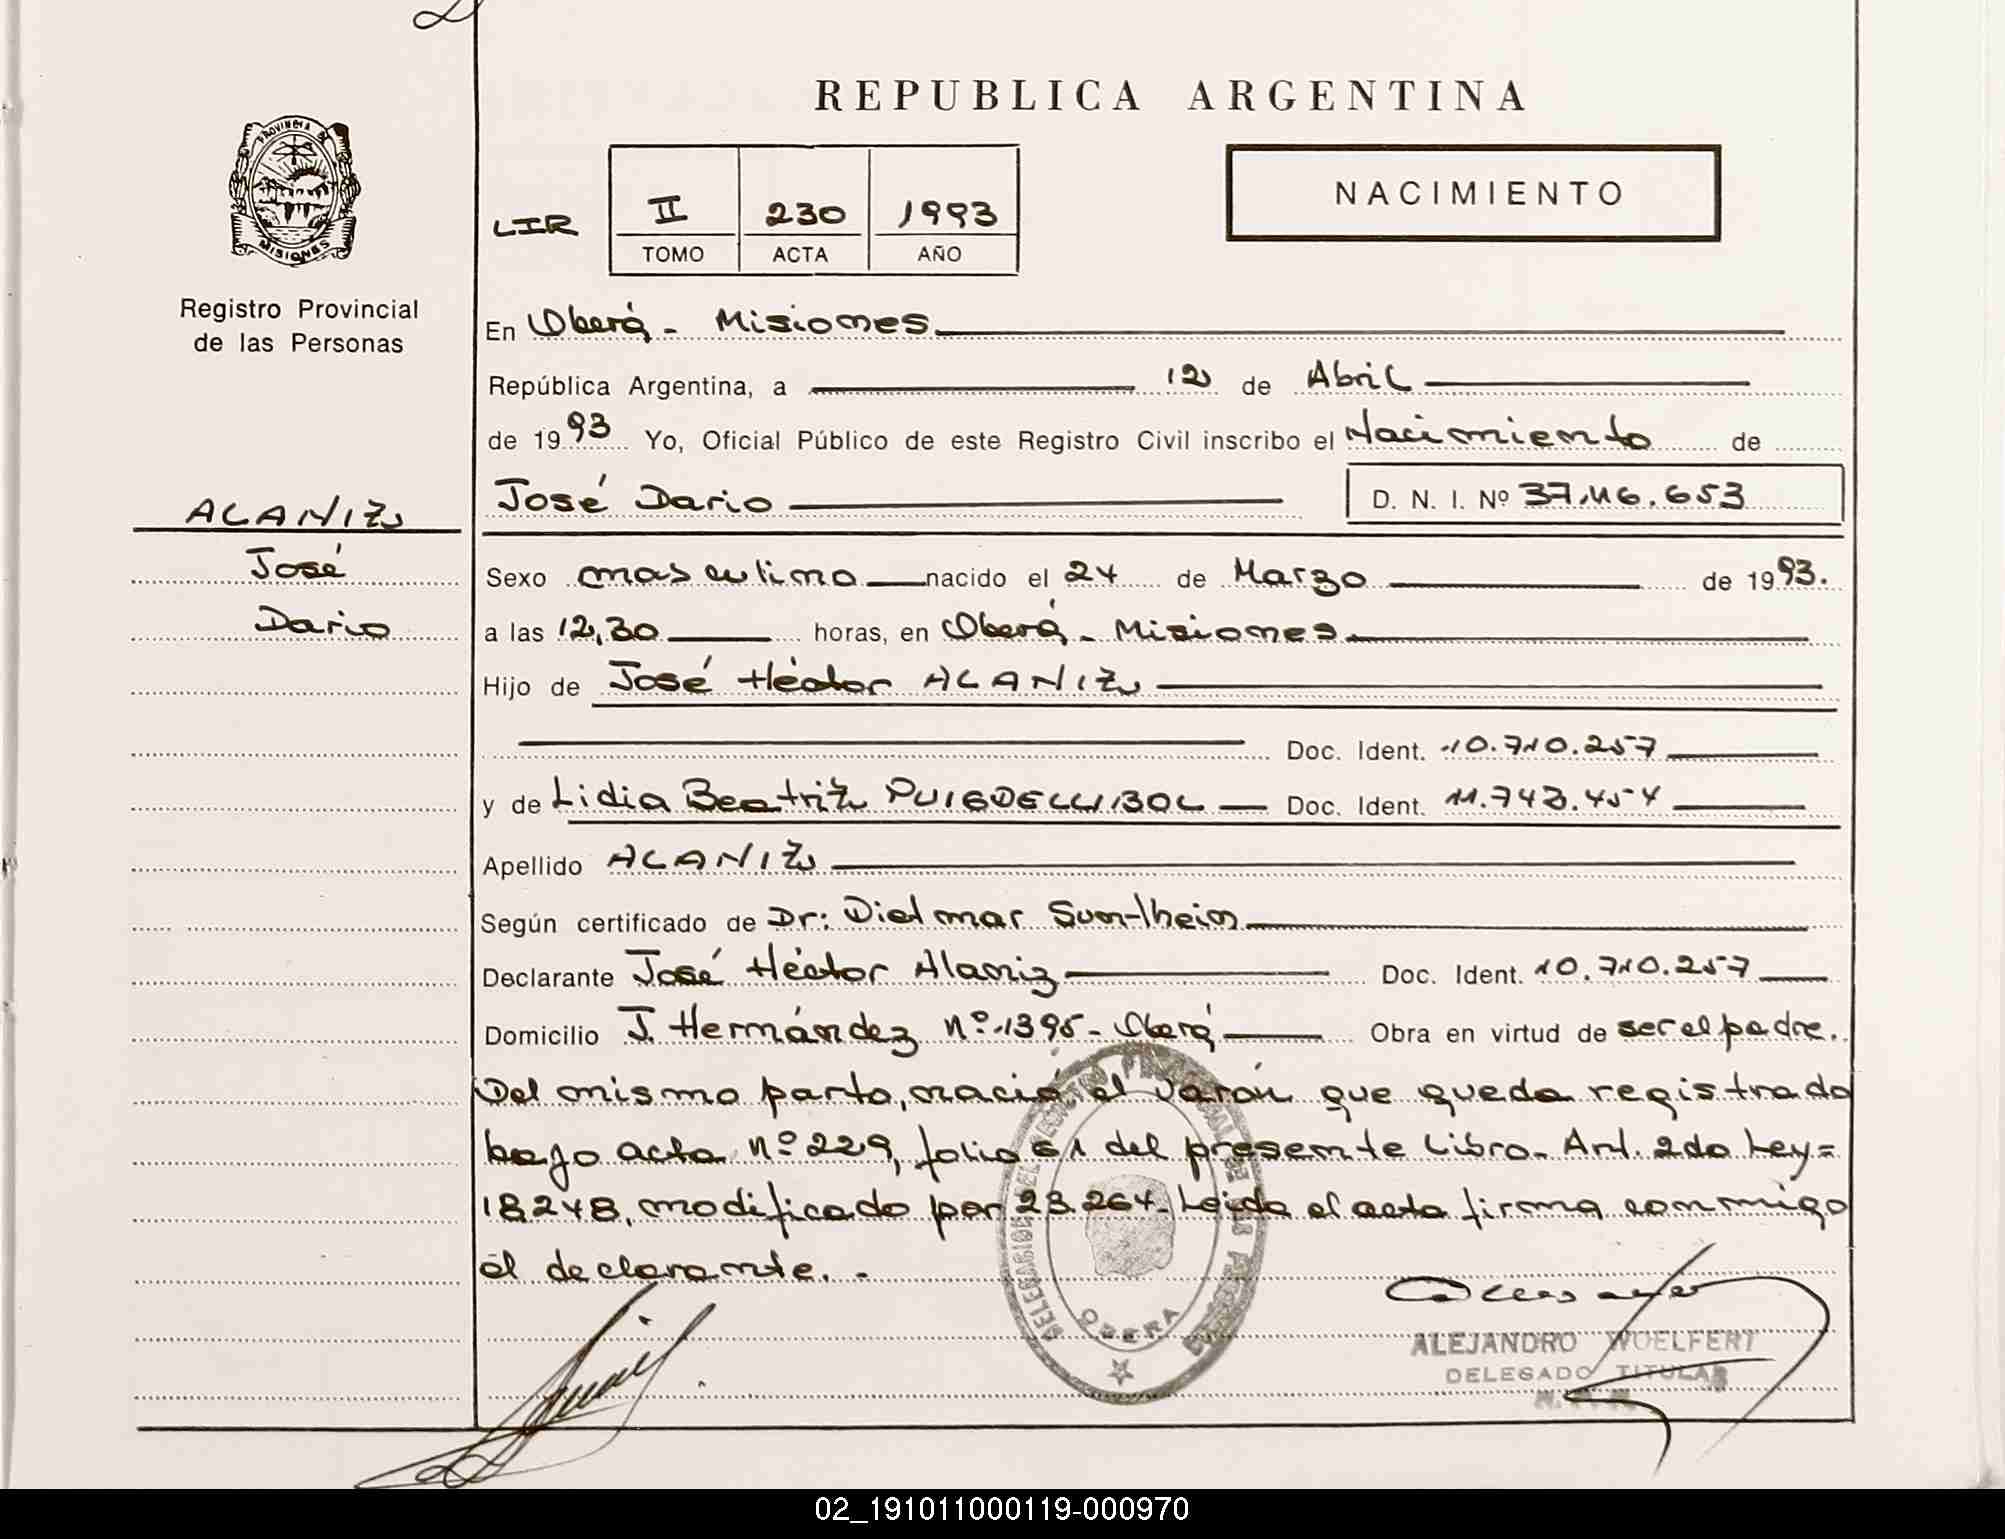 REPUBLICA ARGENTINA
PROVINCIA DE
MISIONES
NACIMIENTO
LIR
II 230 1993
TOMO ACTA AÑO
Registro Provincial
de las Personas
En Oberá - Misiones
República Argentina, a 12 de Abril
de 1993 Yo, Oficial Público de este Registro Civil inscribo el Nacimiento de
ALANIZ
José Dario D. N. I. Nº 37.116.653
José
Sexo masculino nacido el 24 de Marzo de 1993.
Dario
a las 12,30 horas, en Oberá - Misiones
Hijo de José Héctor ALANIZ
Doc. Ident. 10.710.257
y de Lidia Beatriz PUIGDELLIBOL Doc. Ident. 11.743.454
Apellido ALANIZ
Según certificado de Dr: Dietmar
Declarante José Héctor Alaniz Doc. Ident. 10.710.257
Domicilio J. Hernández nº 1395 - Oberá Obra en virtud de ser el padre.
Del mismo parto, nació el varón que queda registrado
bajo acta nº 229, folio 61 del presente Libro. Art. 2do Ley=
18248, modificado por 23.264. Leida el acta firma conmigo
el declarante. -
OBERA
ALEJANDRO WOELFERT
DELEGADO TITULAR
02_191011000119-000970